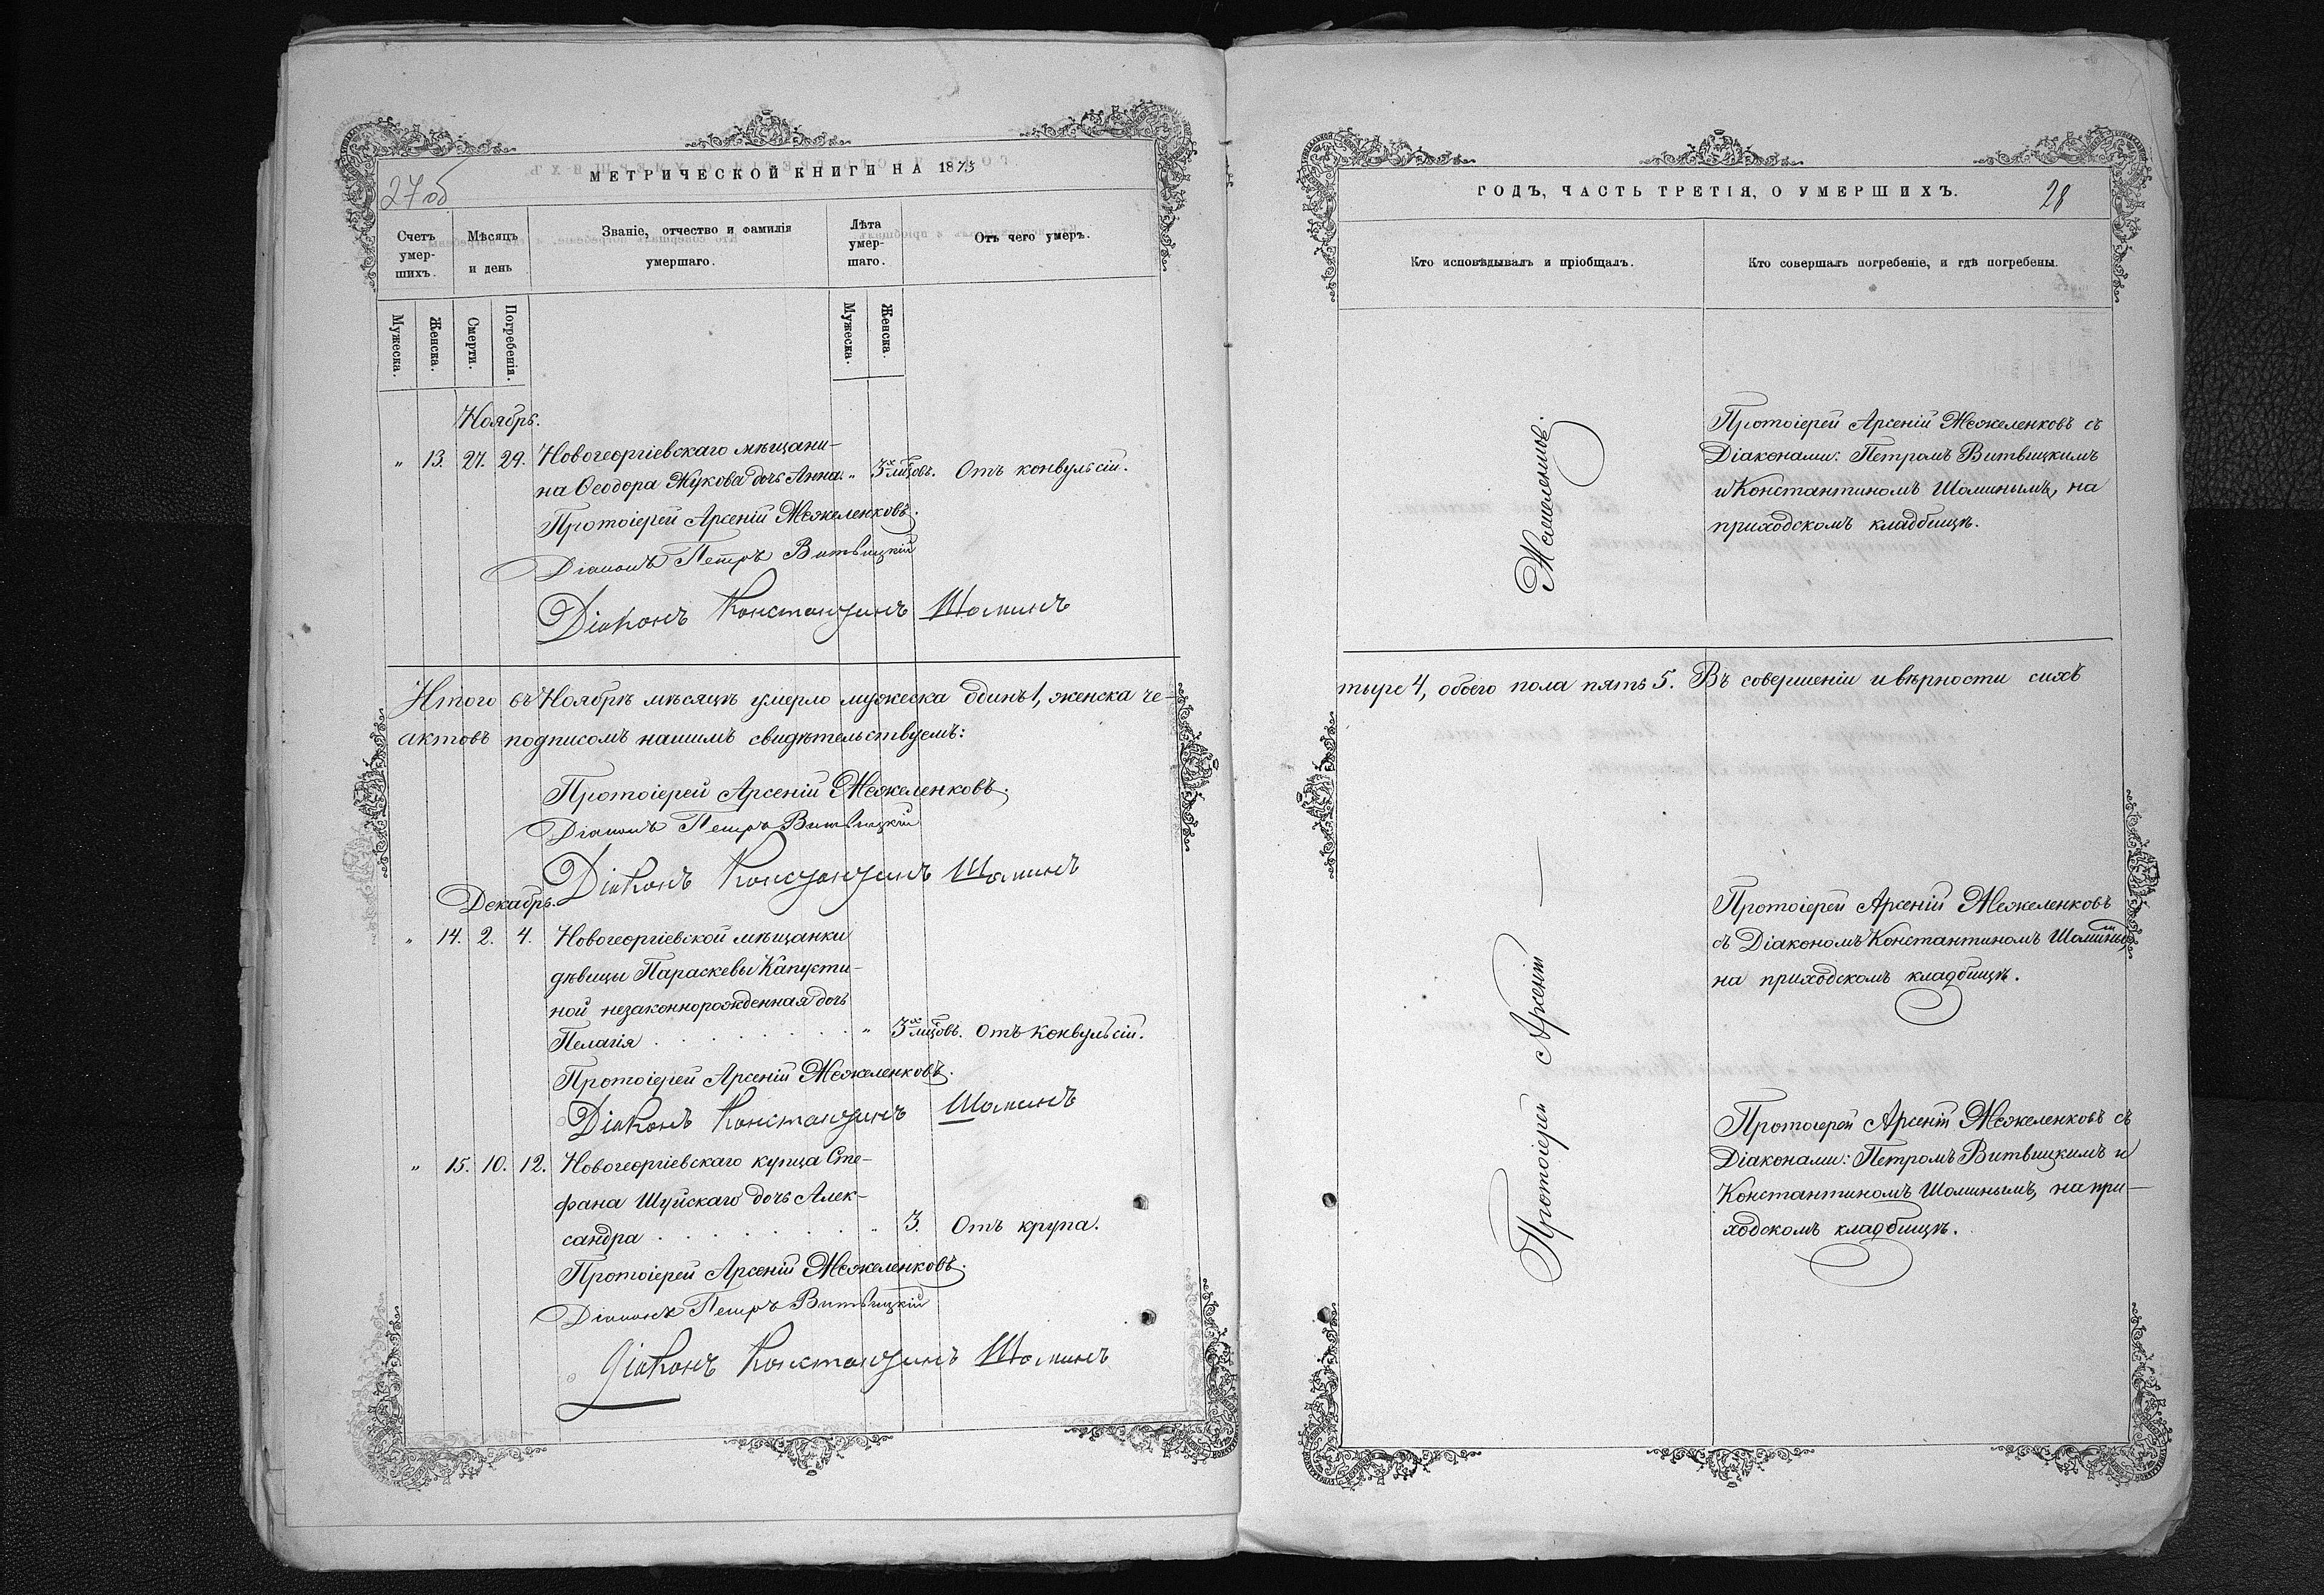 МЕТРИЧЕСКОЙ КНИГИ НА 1873
27об
Счетъ умер-шихъ.
Мѣсяцъ и день
Званіе, отчество и фамилія умершаго.
Лѣта умер-шаго.
Отъ чего умеръ.
Мужеска.
Женска.
Смерти.
Погребенія.
Мужеска.
Женска.
Ноябрь.
" 13. 27. 29. Новогеоргіевскаго мѣщани-
на Ѳеодора Жукова дочь Анна. " 3х мцовъ. Отъ конвульсій.
Протоіерей Арсеній Межеленковъ.
Діаконъ Петръ Витвицкій
Діаконъ Константинъ Шоминъ
Итого въ Ноябрѣ мѣсяцѣ умерло мужеска одинъ 1, женска че-
актовъ подписомъ нашимъ свидѣтельствуемъ:
Протоіерей Арсеній Межеленковъ.
Діаконъ Петръ Витвицкій
Діаконъ Константинъ Шоминъ
Декабрь.
" 14. 2. 4. Новогеоргіевской мѣщанки
дѣвицы Параскевы Капусти-
ной незаконнорожденная дочь
Пелагія . . . . . . . " 3х мцовъ. Отъ конвульсій.
Протоіерей Арсеній Межеленковъ.
Діаконъ Константинъ Шоминъ
" 15. 10. 12. Новогеоргіевскаго купца Сте-
фана Шуйскаго дочь Алек-
сандра . . . . . . . " 3. Отъ крупа.
Протоіерей Арсеній Межеленковъ.
Діаконъ Петръ Витвицкій
Діаконъ Константинъ Шоминъ
ГОДЪ, ЧАСТЬ ТРЕТІЯ, О УМЕРШИХЪ.
28
Кто исповѣдывалъ и пріобщалъ.
Кто совершалъ погребеніе, и гдѣ погребены.
Протоіерей Арсеній Межеленковъ съ
Діаконами: Петромъ Витвицкимъ
и Константиномъ Шоминымъ, на
приходскомъ кладбищѣ.
тыре 4, обоего пола пять 5. Въ совершеніи и вѣрности сихъ
Протоіерей Арсеній Межеленковъ
съ Діакономъ Константиномъ Шоминымъ,
на приходскомъ кладбищѣ.
Протоіерей Арсеній Межеленковъ съ
Діаконами: Петромъ Витвицкимъ и
Константиномъ Шоминымъ, на при-
ходскомъ кладбищѣ.
Протоіерей Арсеній — Межеленковъ.